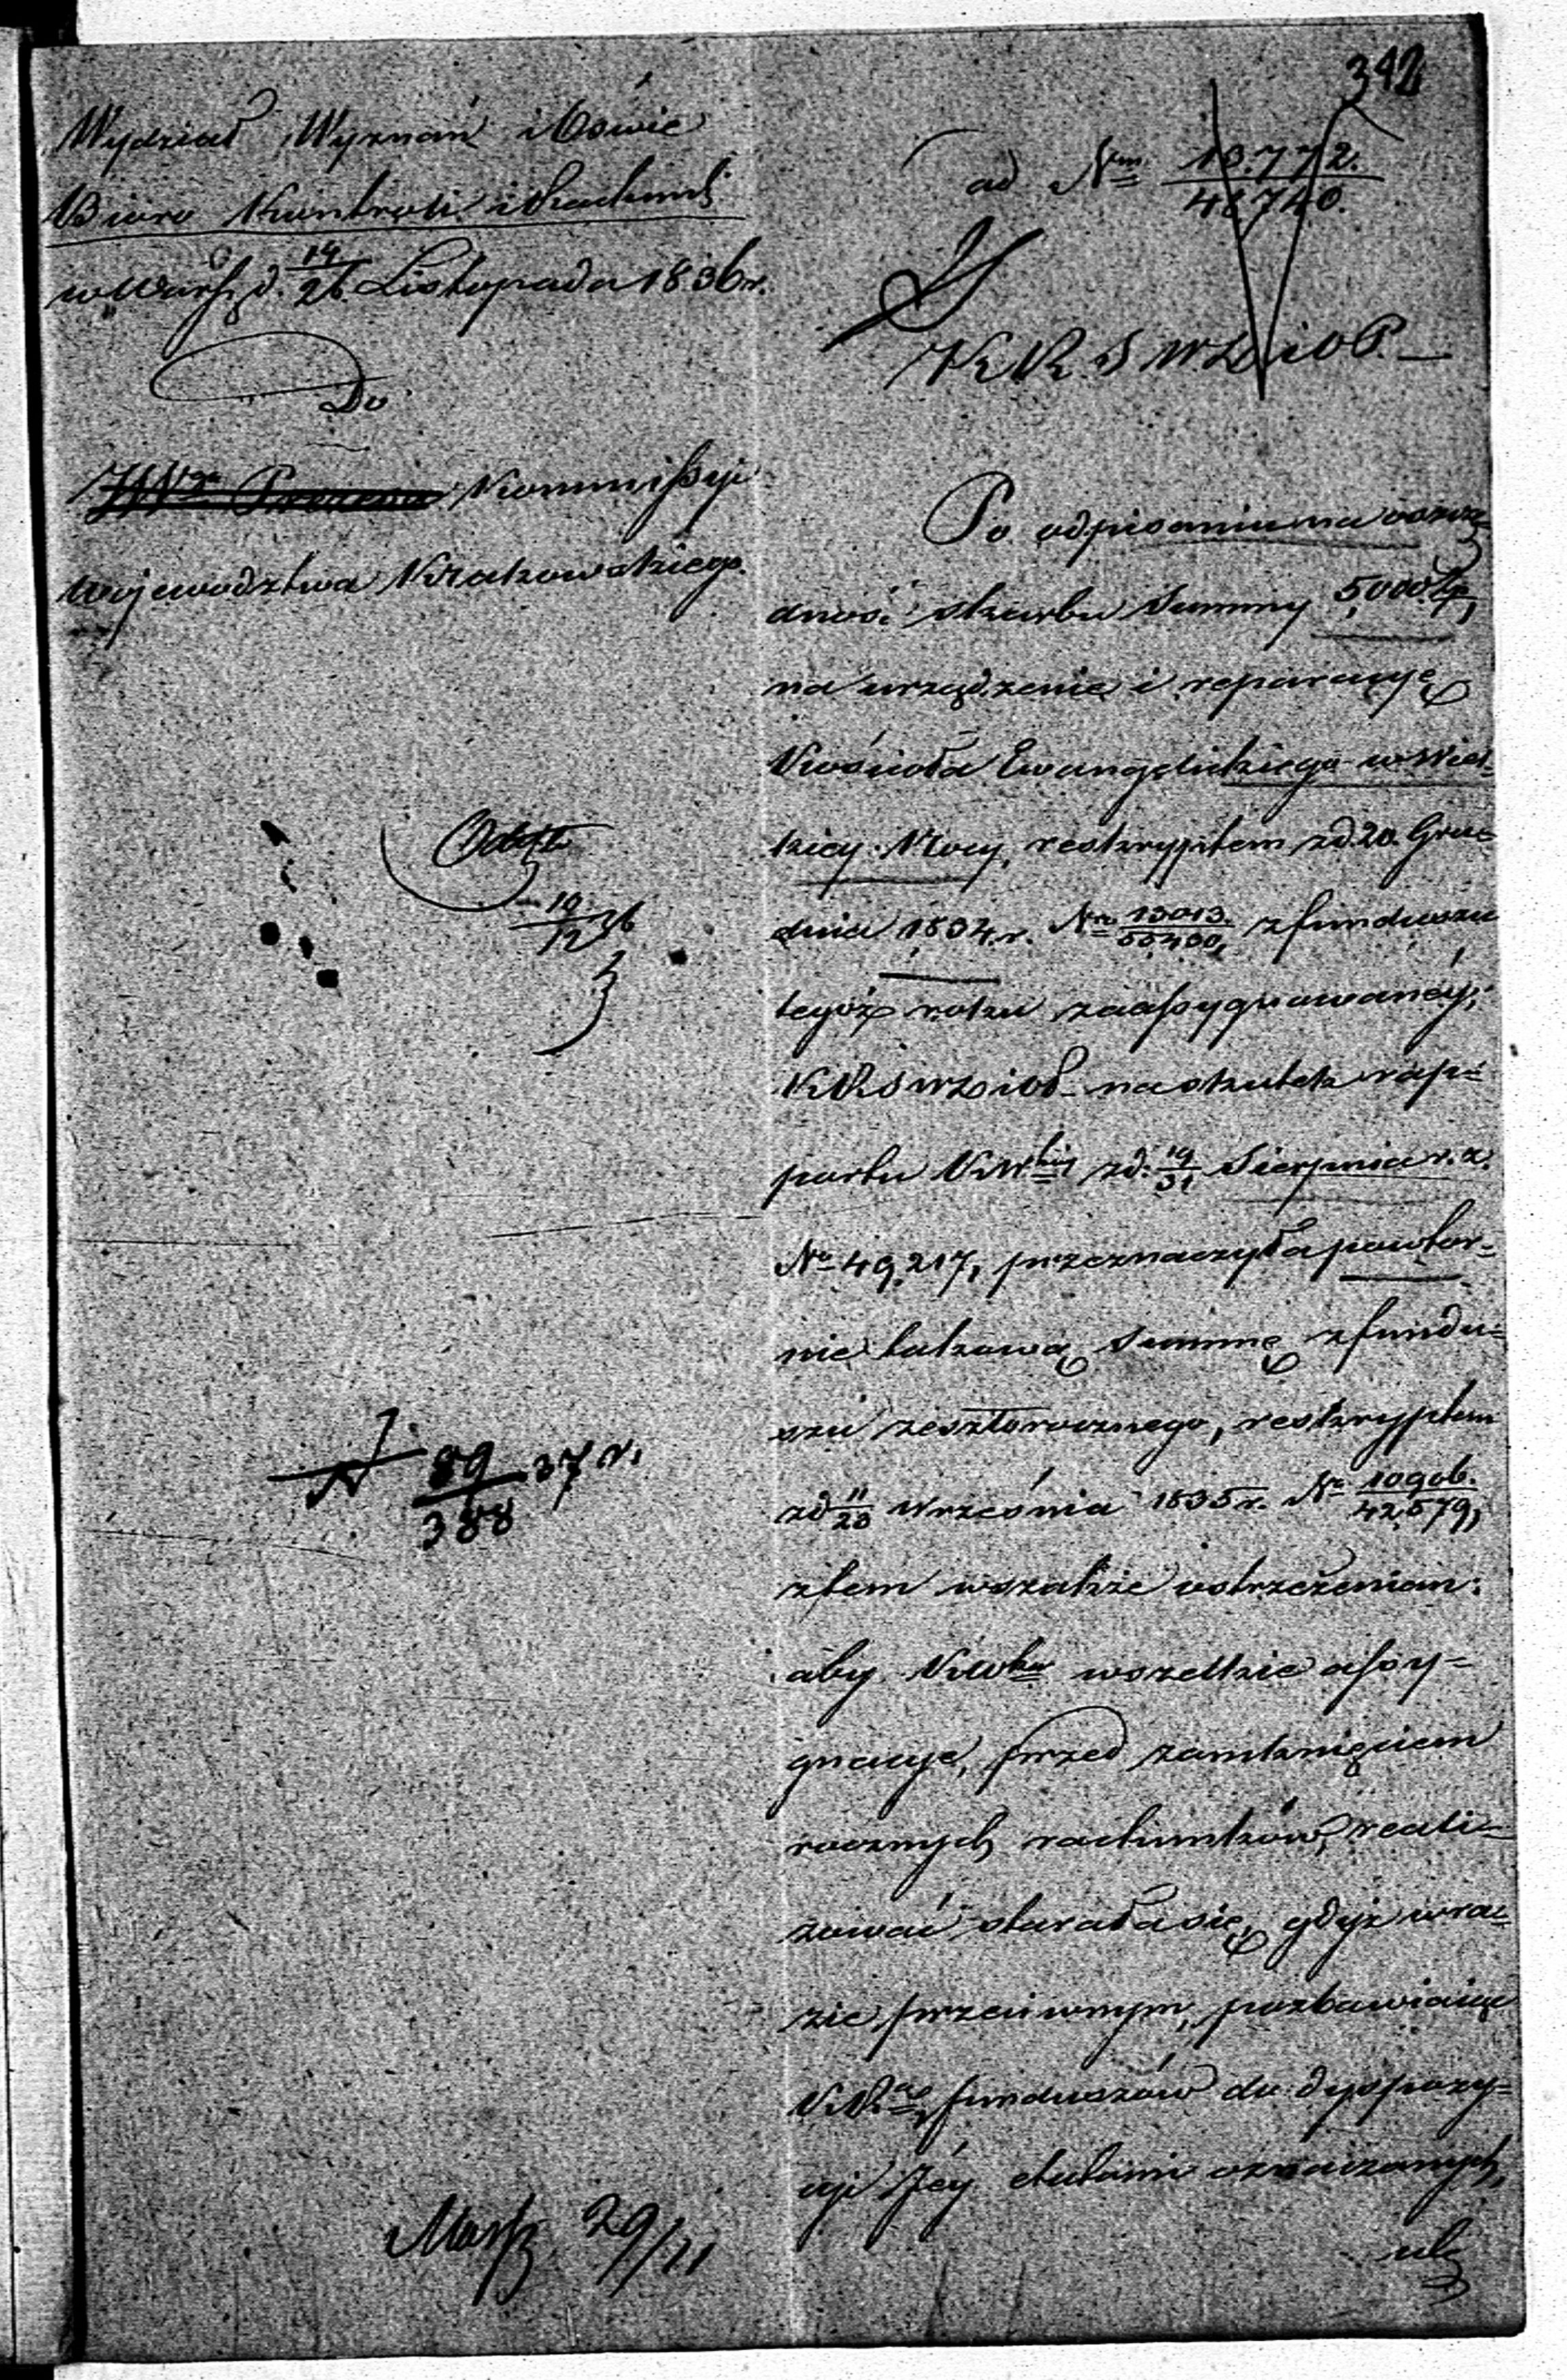 342
Wydział Wyznań i Oświe
Biuro Kontroli i Rachunk
w Warsz d. 14/26 Listopada 1836 r.
Do
JWgo Prezesa Kommissyi
Województwa Krakowskiego.
ad Nrm 13.772./48740.
K R S W D i O P. —
Po odpisaniu na oszczę-
dność skarbu Summy 5,000 Zp,
na urządzenie i reparacyę
Kościoła Ewangelickiego w Wiel-
kiey Mocy, reskryptem z d. 20. Gru-
dnia 1834. r. Nro 13013./55430, z funduszu
tegoż roku zaassygnowanéy;
K R S W D i O P. na skutek rap-
portu K Wkiéj z d. 19/31 Sierpnia r. z.
No 49,217, przeznaczyła powtór-
nie takową Summę z fundu-
szu zeszłorocznego, reskryptem
z d 11/23 Września 1835 r. No 10906./42,579,
z tem wszakże ostrzeżeniem:
aby K Wka wszelkie assy-
gnacye, przed zamknięciem
rocznych rachunków, reali-
zować starała się, gdyż w ra-
zie przeciwnym, pozbawiając
K R. funduszów do dyspozy-
cyi Jéy etatami oznaczonych,
10/12 36
N 89/388 37 r.
29/11